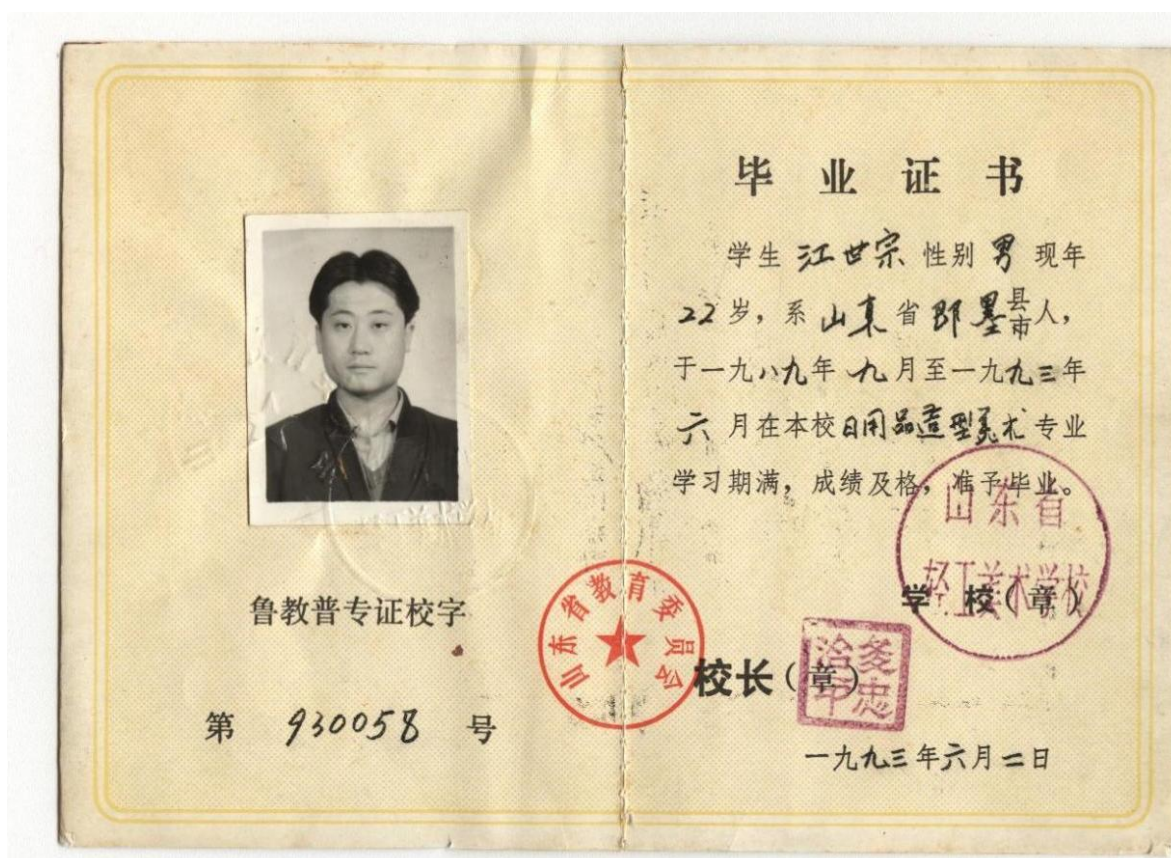 鲁教普专证校字
第 930058 号
山东省教育委员会
毕业证书
学生 江世宗 性别 男 现年
22岁，系 山东 省 即墨 县市 人，
于一九八九年 九月至一九九三年
六 月在本校日用品造型美术专业
学习期满，成绩及格，准予毕业。
山东省
轻工美术学校
学校（章）
校长（章）
一九九三年六月二日